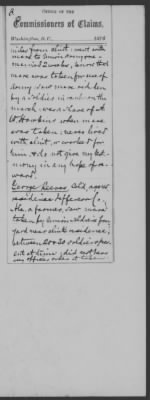 2
OFFICE OF THE
Commissioners of Claims,
Washington, D.C., 187
miles from clmt; went with
mare to Union army &
remained 2 weeks, knows that
mare was taken for use of
army, saw mare ridden
by a soldier in ranks on the
march, was a slave of
W. Hawkins when mare
was taken; never lived
with clmt, or worked for
him, & do not give my testi-
mony in any hope of re-
ward.
George Reeves, Cold, aged
residence Jefferson Co.
Ala, a farmer, saw mare
taken by Union soldiers from
yard near clmts residence;
between 20 & 30 soldiers pres-
ent at time; did not hear
any officer order it taken